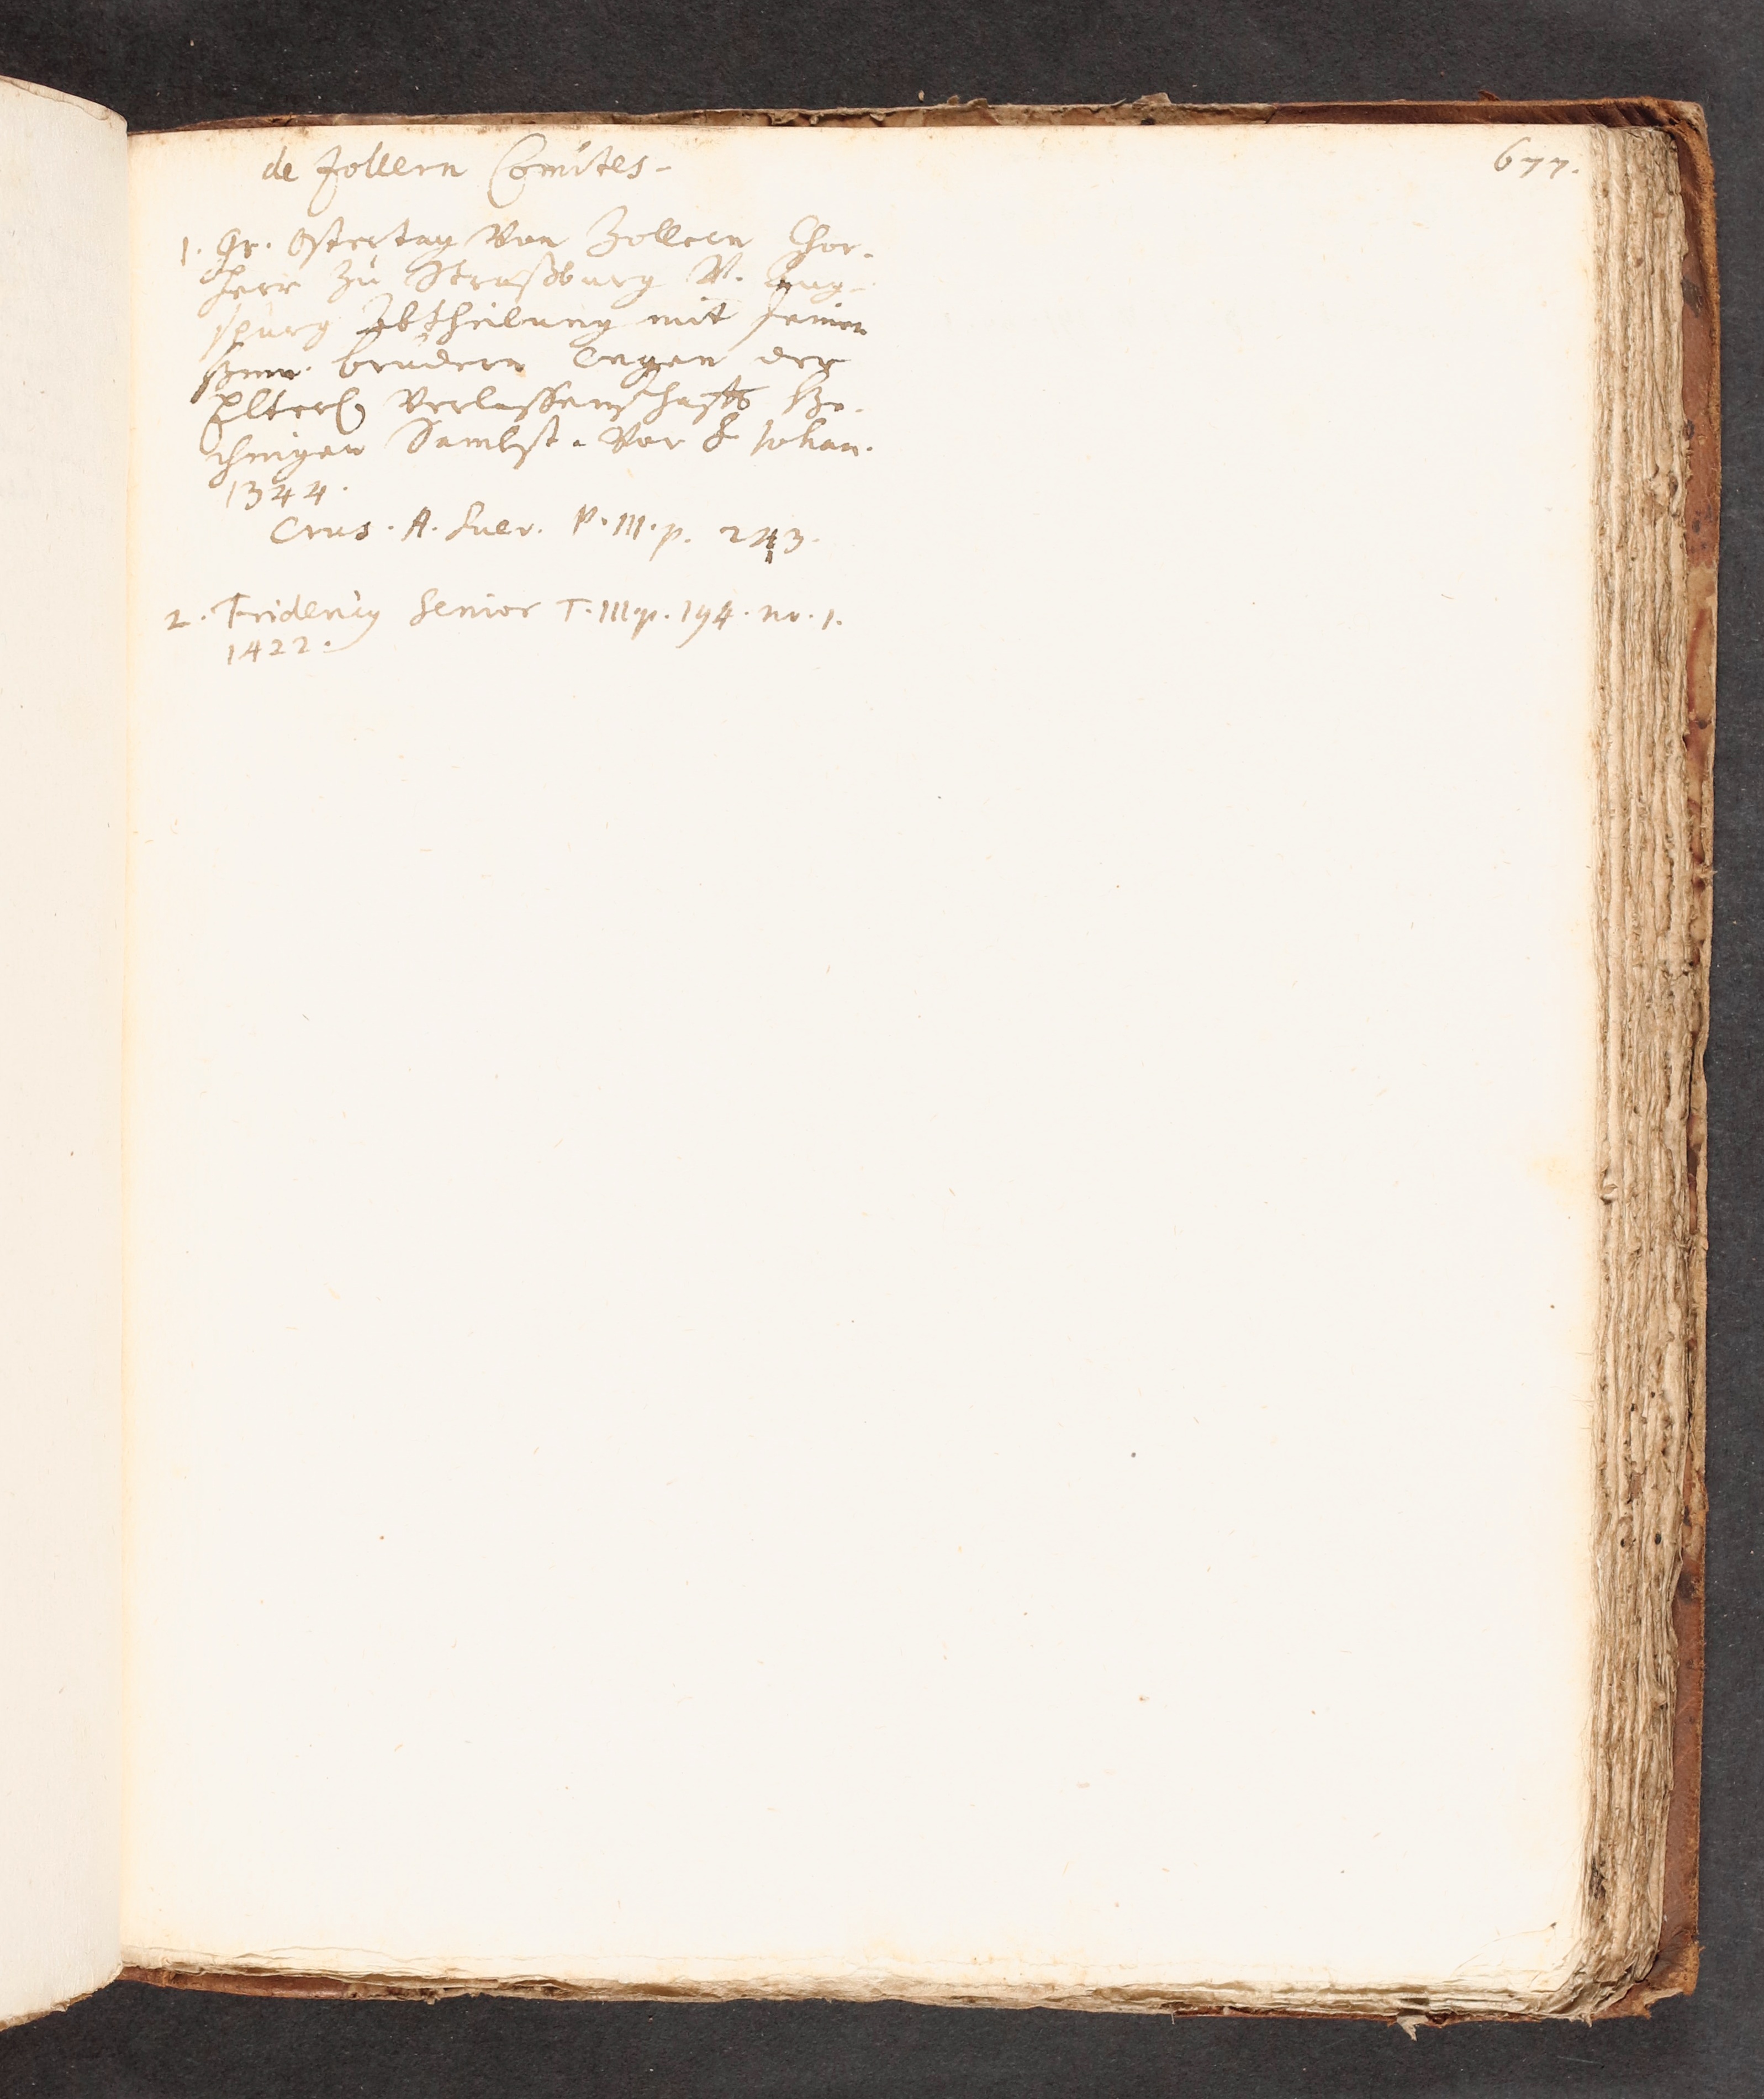 de Zollern Comites -
677.
1. Gr. Ostertag Von Zollern Chor-
herr Zu Straßburg V. Aug-
spurg Abtheilung mit seinen
brüdern wegen der
Elterl. Verlassenschafft
Sambst. Vor S. Johan.
1344.
Crus. A. Suev. P. III. p. 243.
2. Fridericus Senior T. III. p. 194. nr. 1.
1422.